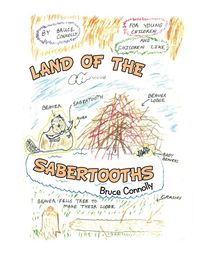 BY BRUCE CONNOLLY
FOR YOUNG CHILDREN
AND
CHILDREN LIKE
LAND OF THE
BEAVER
SABRETOOTH
BEAVER LODGE
SABERTOOTHS
BABY BEAVERS
Bruce Connolly
BEAVER FELLS TREE TO
MAKE THEIR LODGE